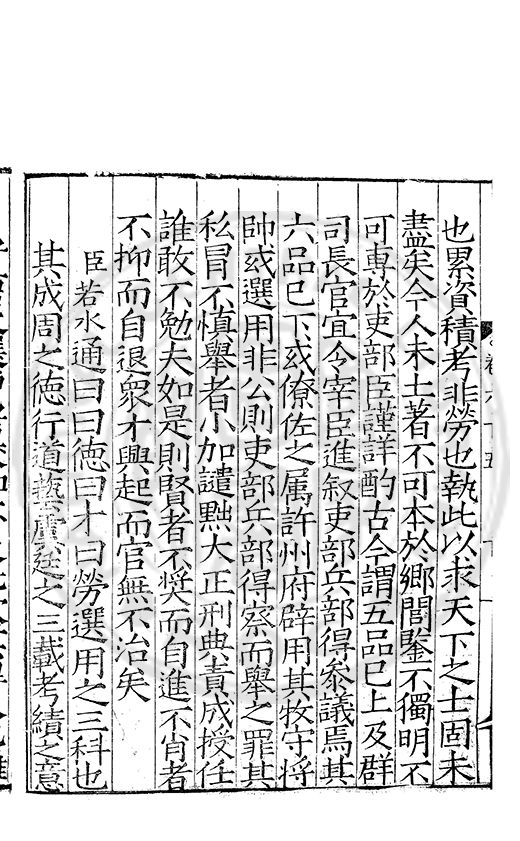 也累資積考非勞也執此以求天下之士固未
盡矣今人未土著不可本於鄉閭鑒不獨明不
可專於吏部臣謹詳酌古今謂五品已上及群
司長官宜令宰臣進叙吏部兵部得叅議焉其
六品已下或僚佐之属許州府辟用其牧守將
帥或選用非公則吏部兵部得察而舉之罪其
私冒不慎舉者小加譴黜大正刑典責成授任
誰敢不勉夫如是則賢者不奨而自進不肖者
不抑而自退衆才興起而官無不治矣
臣若水通曰曰徳曰才曰勞選用之三科也
其成周之徳行道藝虞廷之三載考績之意